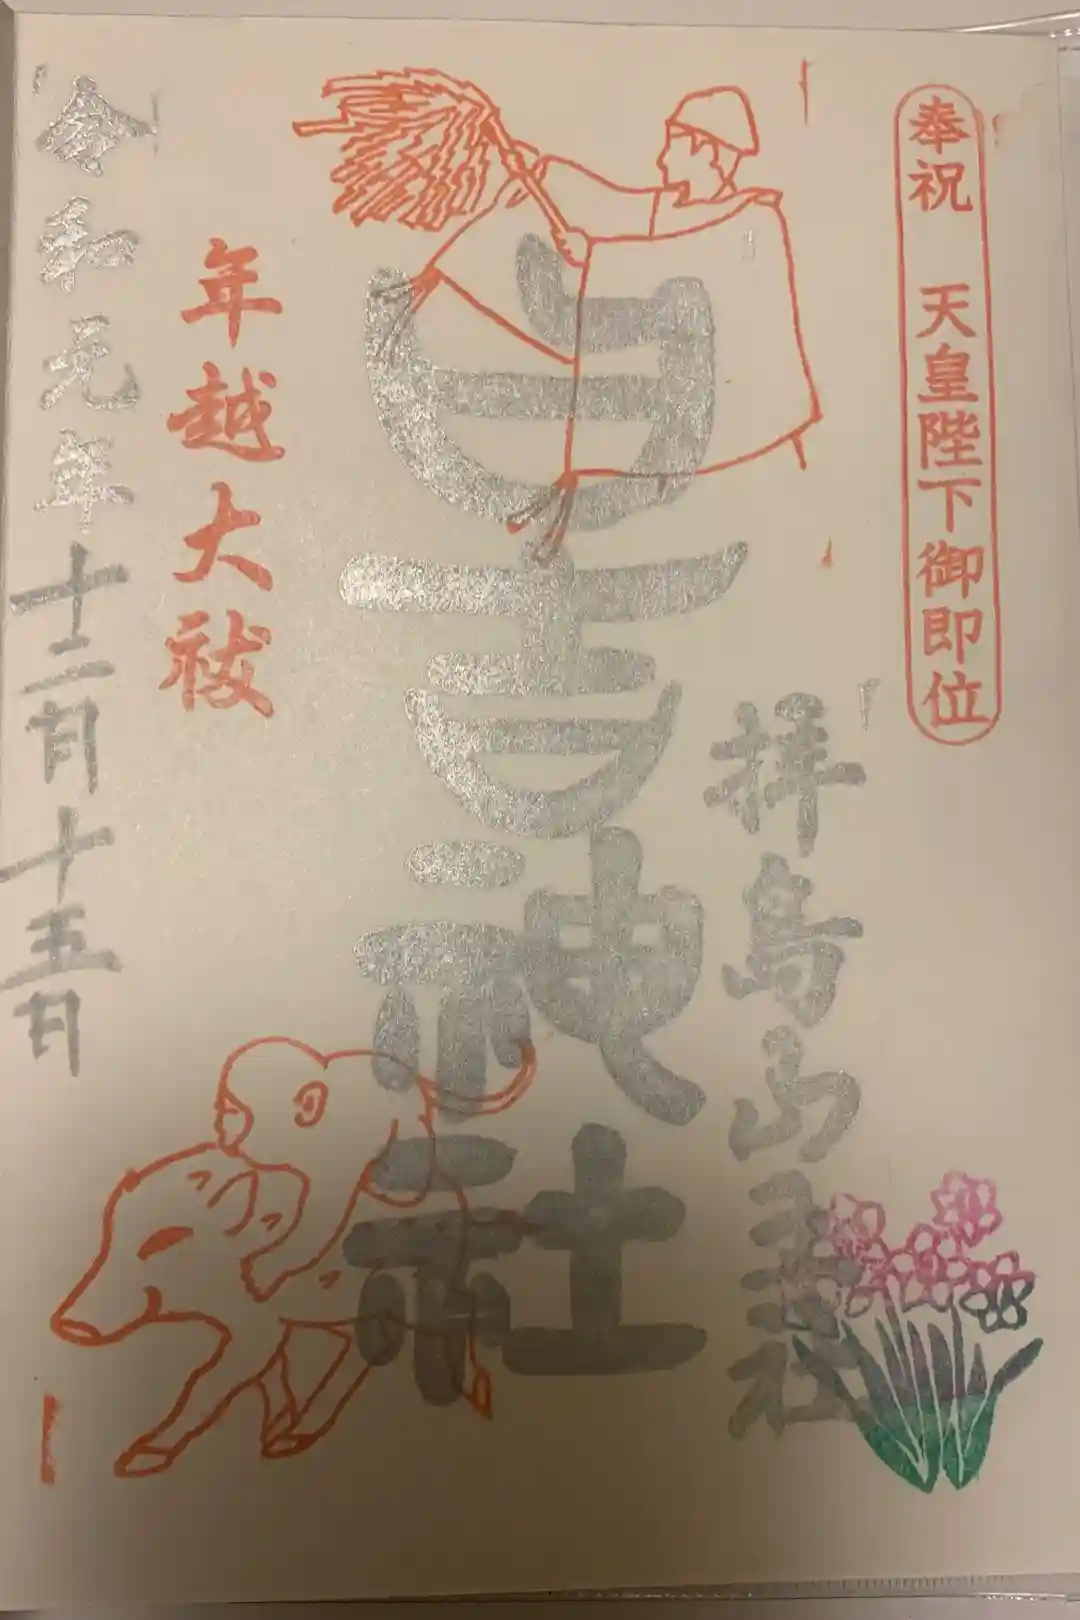 奉祝 天皇陛下御即位
拝島山王社
日吉神社
年越大祓
令和元年十二月十五日